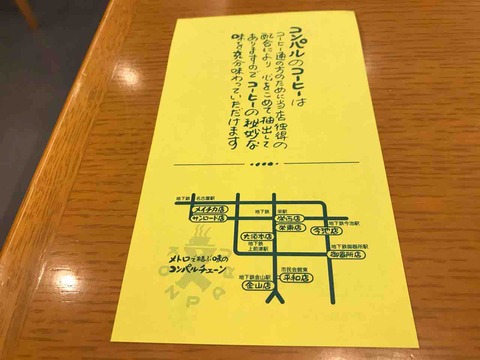 コンパルのコーヒーは
コーヒー通の方のために当店独得の
配合により 心をこめて抽出して
ありますので コーヒーの秘妙な
味を充分味わっていただけます
地下鉄 名古屋駅
メイチカ店
サンロード店
地下鉄 栄駅
栄西店
栄東店
地下鉄今池駅
今池店
大須本店
地下鉄
上前津駅
地下鉄御器所駅
御器所店
メトロで結ぶ味の
コンパルチェーン
地下鉄金山駅
金山店
市民会館東
平和店